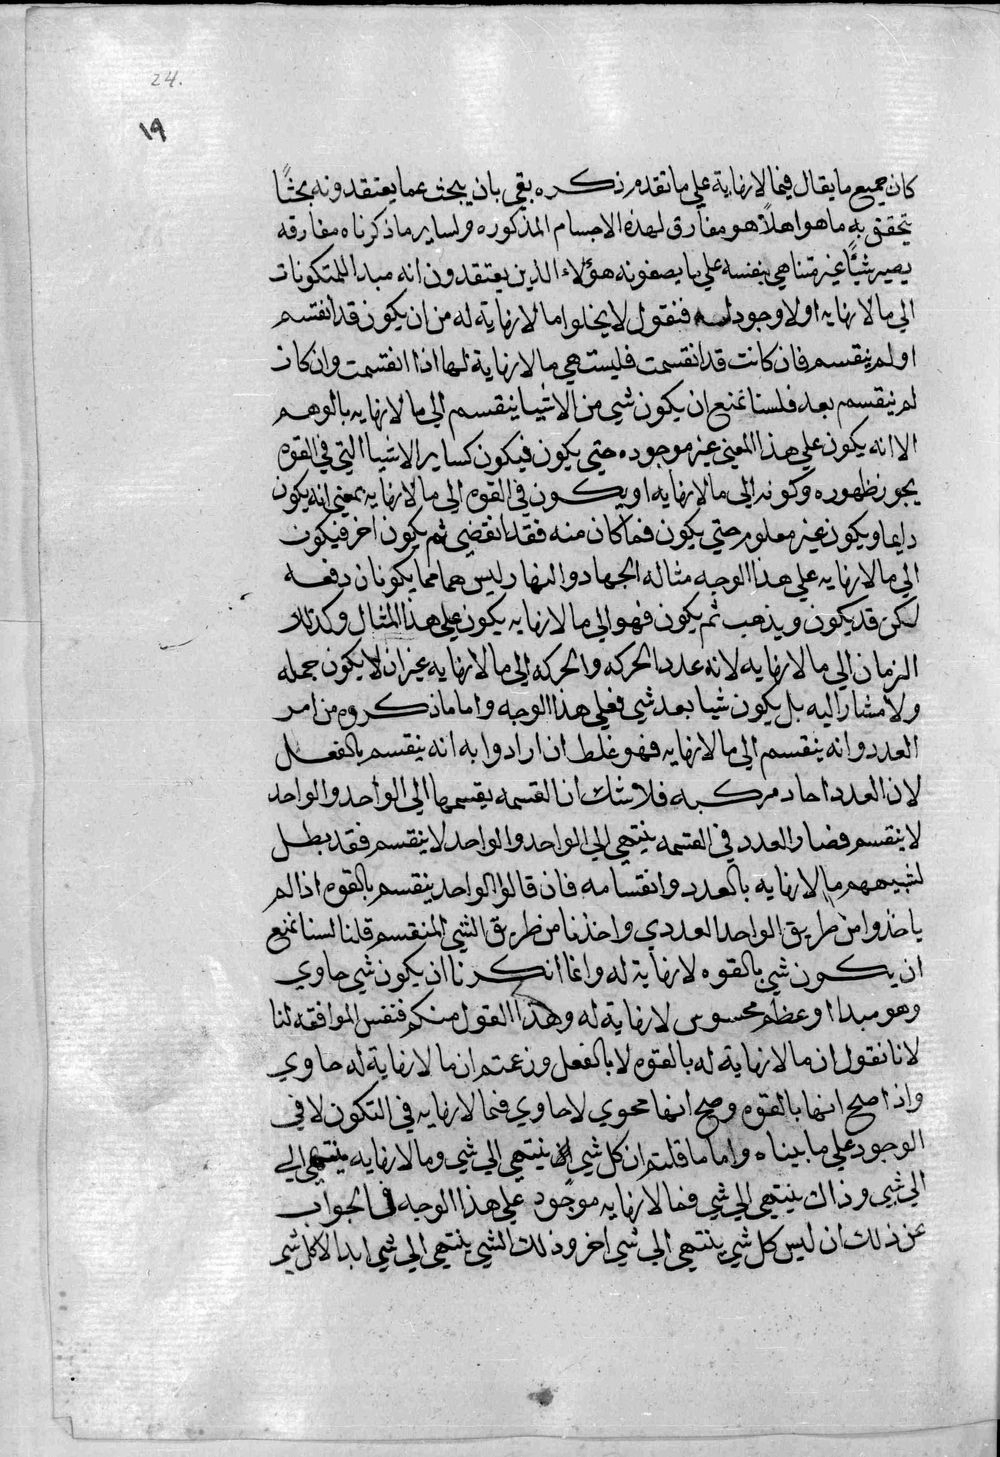 24.
١٩
كان جميع ما يقال فيما لا نهاية علي ما تقدم ذكره بقي بان يبحث عما يعتقدونه بحثًا
يتحقق به ما هو اهلاً هو مفارق لهذه الاجسام المذكوره ولساير ما ذكرناه مفارقه
يصير شيًا غير متناهي بنفسه علي ما يصفونه هؤلاء الذين يعتقدون انه مبدا للمتكونات
الي ما لا نهايه او لا وجود له فنقول لا يخلوا ما لا نهاية له من ان يكون قد انقسم
او لم ينقسم فان كانت قد انقسمت فليست هي ما لا نهاية لها اذا انقسمت وان كان
لم ينقسم بعد فلسنا نمنع ان يكون شي من الاشيا ينقسم الي ما لا نهايه بالوهم
الا انه يكون علي هذا المعني غير موجوده حتي يكون فيكون كساير الاشيا التي في القوه
يجوز ظهوره وكونه الي ما لا نهايه او يكون في القوه الي ما لا نهايه بمعني انه يكون
دايما ويكون غير معلوم حتي يكون فما كان منه فقد انقضي ثم يكون اخر فيكون
الي ما لا نهايه علي هذا الوجه مثاله الجهاد والنهار ليس هما مما يكونان دفعه
لكن قد يكون ويذهب ثم يكون فهو الي ما لا نهايه يكون علي هذا المثال وكذلك
الزمان الي ما لا نهايه لانه عدد الحركه والحركه الي ما لا نهايه غير ان لا يكون جمله
ولا مشار اليه بل يكون شيا بعد شي فعلي هذا الوجه واما ما ذكروه من امر
العدد وانه ينقسم الي ما لا نهايه فهو غلط ان ارادوا به انه ينقسم بالفعل
لان العدد احاد مركبه فلا شك ان القسمه يقسمها الي الواحد والواحد
لا ينقسم فصار العدد في القسمه ينتهي الي الواحد والواحد لا ينقسم فقد بطل
تشبيههم ما لا نهايه بالعدد وانقسامه فان قالوا الواحد ينقسم بالقوه اذا لم
ياخذوا من طريق الواحد العددي واخذنا من طريق الشي المنقسم قلنا لسنا نمنع
ان يكون شي بالقوه لا نهاية له وانما انكرنا ان يكون شي حاوي
وهو مبدا او عظم محسوس لا نهاية له وهذا القول منكم فنفس الموافقه لنا
لانا نقول ان ما لا نهاية له بالقوه لا بالفعل وزعمتم ان ما لا نهاية له حاوي
واذا صح انها بالقوه وصح انها محوي لا حاوي فما لا نهايه في التكون لا في
الوجود علي ما بيناه واما ما قلتم ان كل شي ينتهي الي شي وما لا نهايه ينتهي الي
الي شي وذاك ينتهي الي شي فما لا نهايه موجود علي هذا الوجه فالجواب
عن ذلك ان ليس كل شي ينتهي الي شي اخر وذلك الشي ينتهي الي شي ابدا لان كل شي